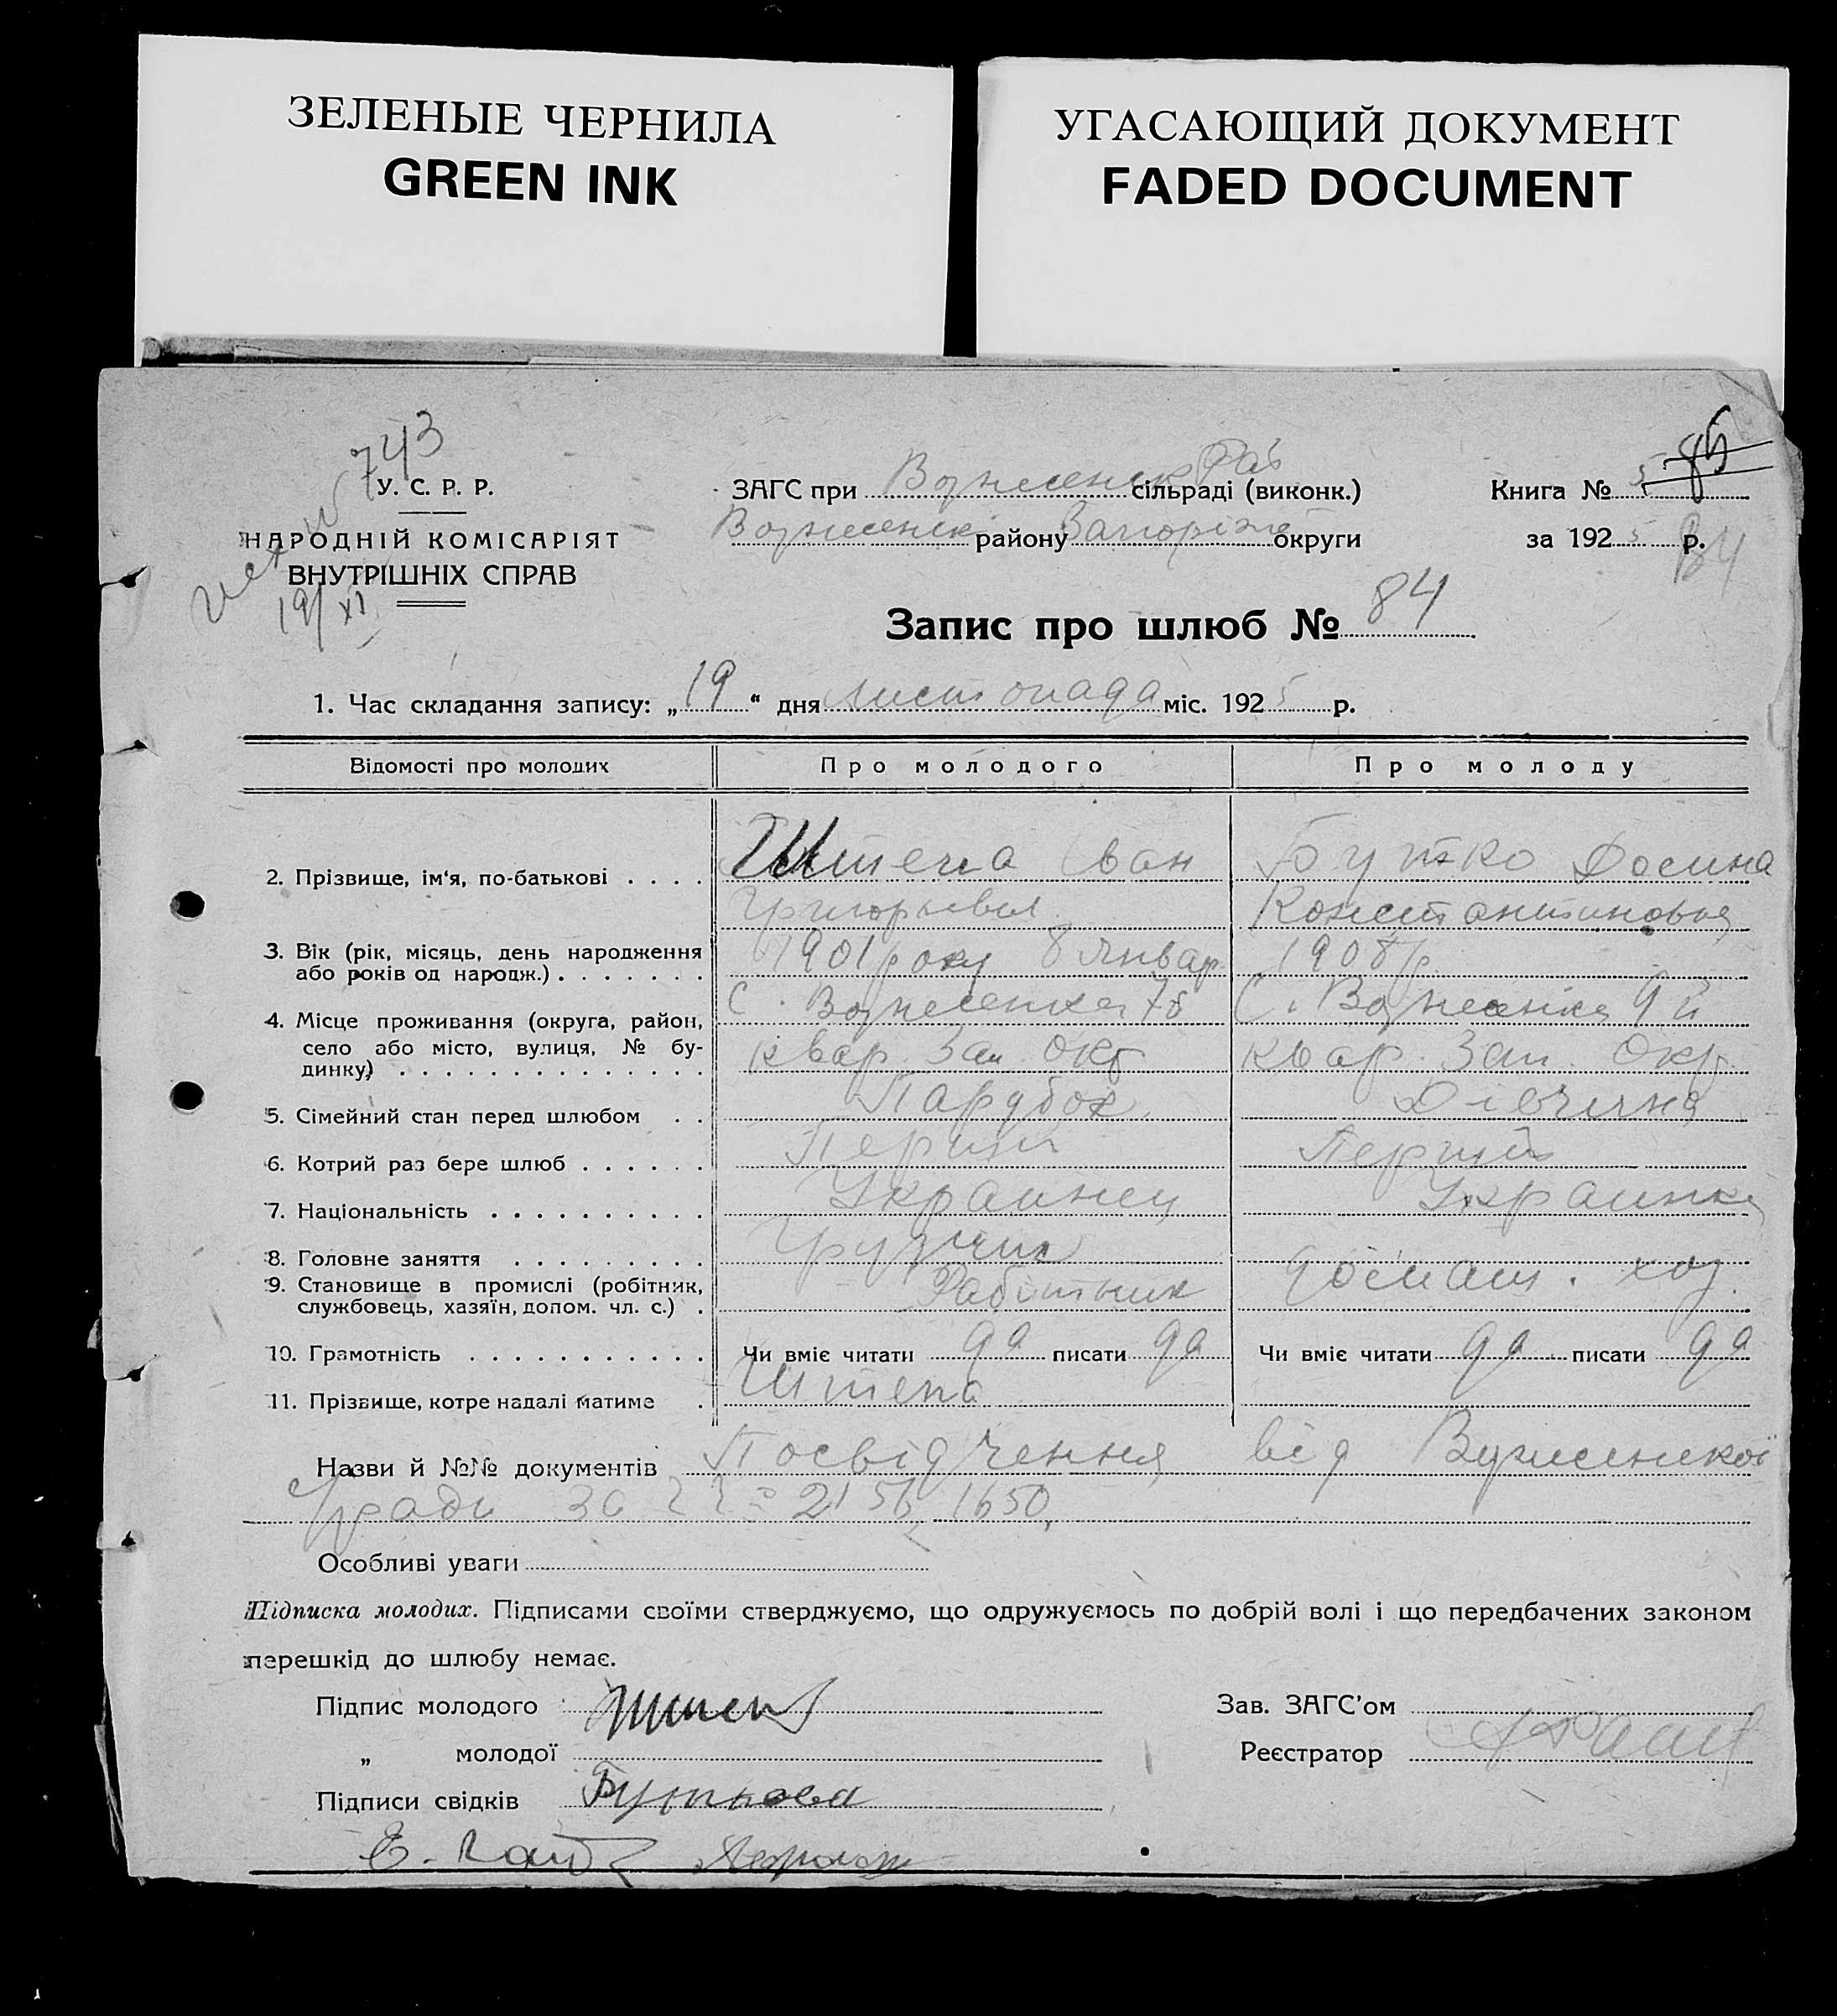 ЗЕЛЕНЫЕ ЧЕРНИЛА
GREEN INK
УГАСАЮЩИЙ ДОКУМЕНТ
FADED DOCUMENT
743
У. С. Р. Р.
НАРОДНІЙ КОМІСАРІЯТ
ВНУТРІШНІХ СПРАВ
19/XI
ЗАГС при Вознесенск Рай сільраді (виконк.)
Вознесенск району Запоріж округи
Книга № 5 85
за 1925 р.
84
Запис про шлюб № 84
1. Час складання запису: „19“ дня листопада міс. 1925 р.
Відомості про молодих
Про молодого
Про молоду
2. Прізвище, ім‘я, по-батькові
Штепа Іван
Григорьевич
Бутко Досина
Константиновна
3. Вік (рік, місяць, день народження
або років од народж.)
1901 року 8 январ
1908 р
4. Місце проживання (округа, район,
село або місто, вулиця, № бу-
динку)
С. Вознесенка 7й
квар. Зап. Окр
С. Вознесенка 9й
квар. Зап. Окр.
5. Сімейний стан перед шлюбом
Парубок
Дівчина
6. Котрий раз бере шлюб
Перший
Перший
7. Національність
Украинец
Украинка
8. Головне заняття
Грузчик
9. Становище в промислі (робітник,
службовець, хазяїн, допом. чл. с.)
Работник
домаш. хоз.
10. Грамотність
Чи вміє читати да писати да
Чи вміє читати да писати да
11. Прізвище, котре надалі матиме
Штепа
Назви й №№ документів Посвідчення від Вознесенської
ради за 2156, 1650,
Особливі уваги
Підписка молодих. Підписами своїми стверджуємо, що одружуємось по добрій волі і що передбачених законом
перешкід до шлюбу немає.
Підпис молодого Штепа
„ молодої
Підписи свідків Буткова
Зав. ЗАГС’ом
Реєстратор